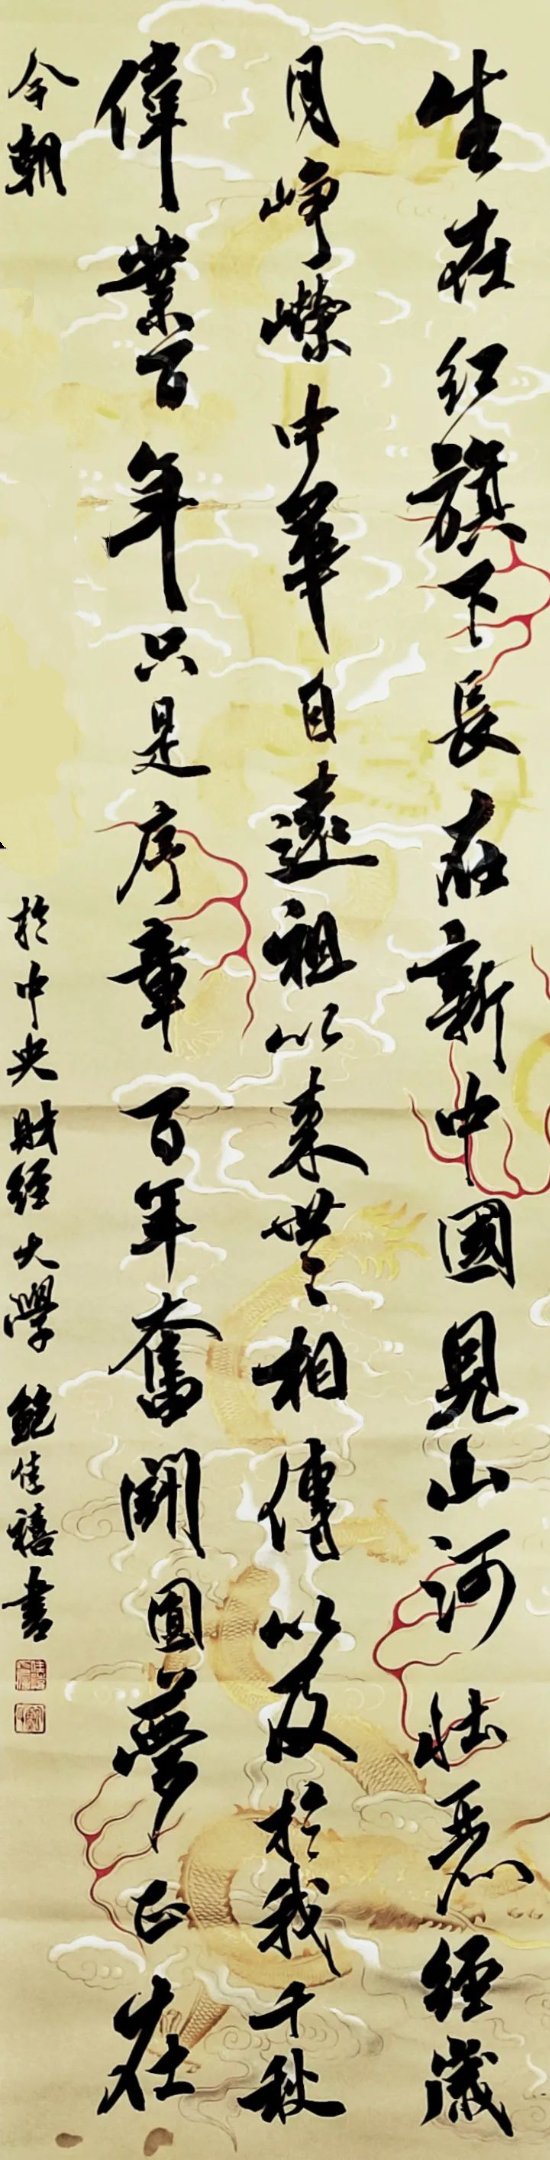 生在红旗下長在新中國見山河壮麗經歲
月崢嶸中華自遠祖以来世々相傳以及於我千秋
偉業百年只是序章百年奮鬪圓夢正在
今朝
於中央財經大學鲍佳禧書